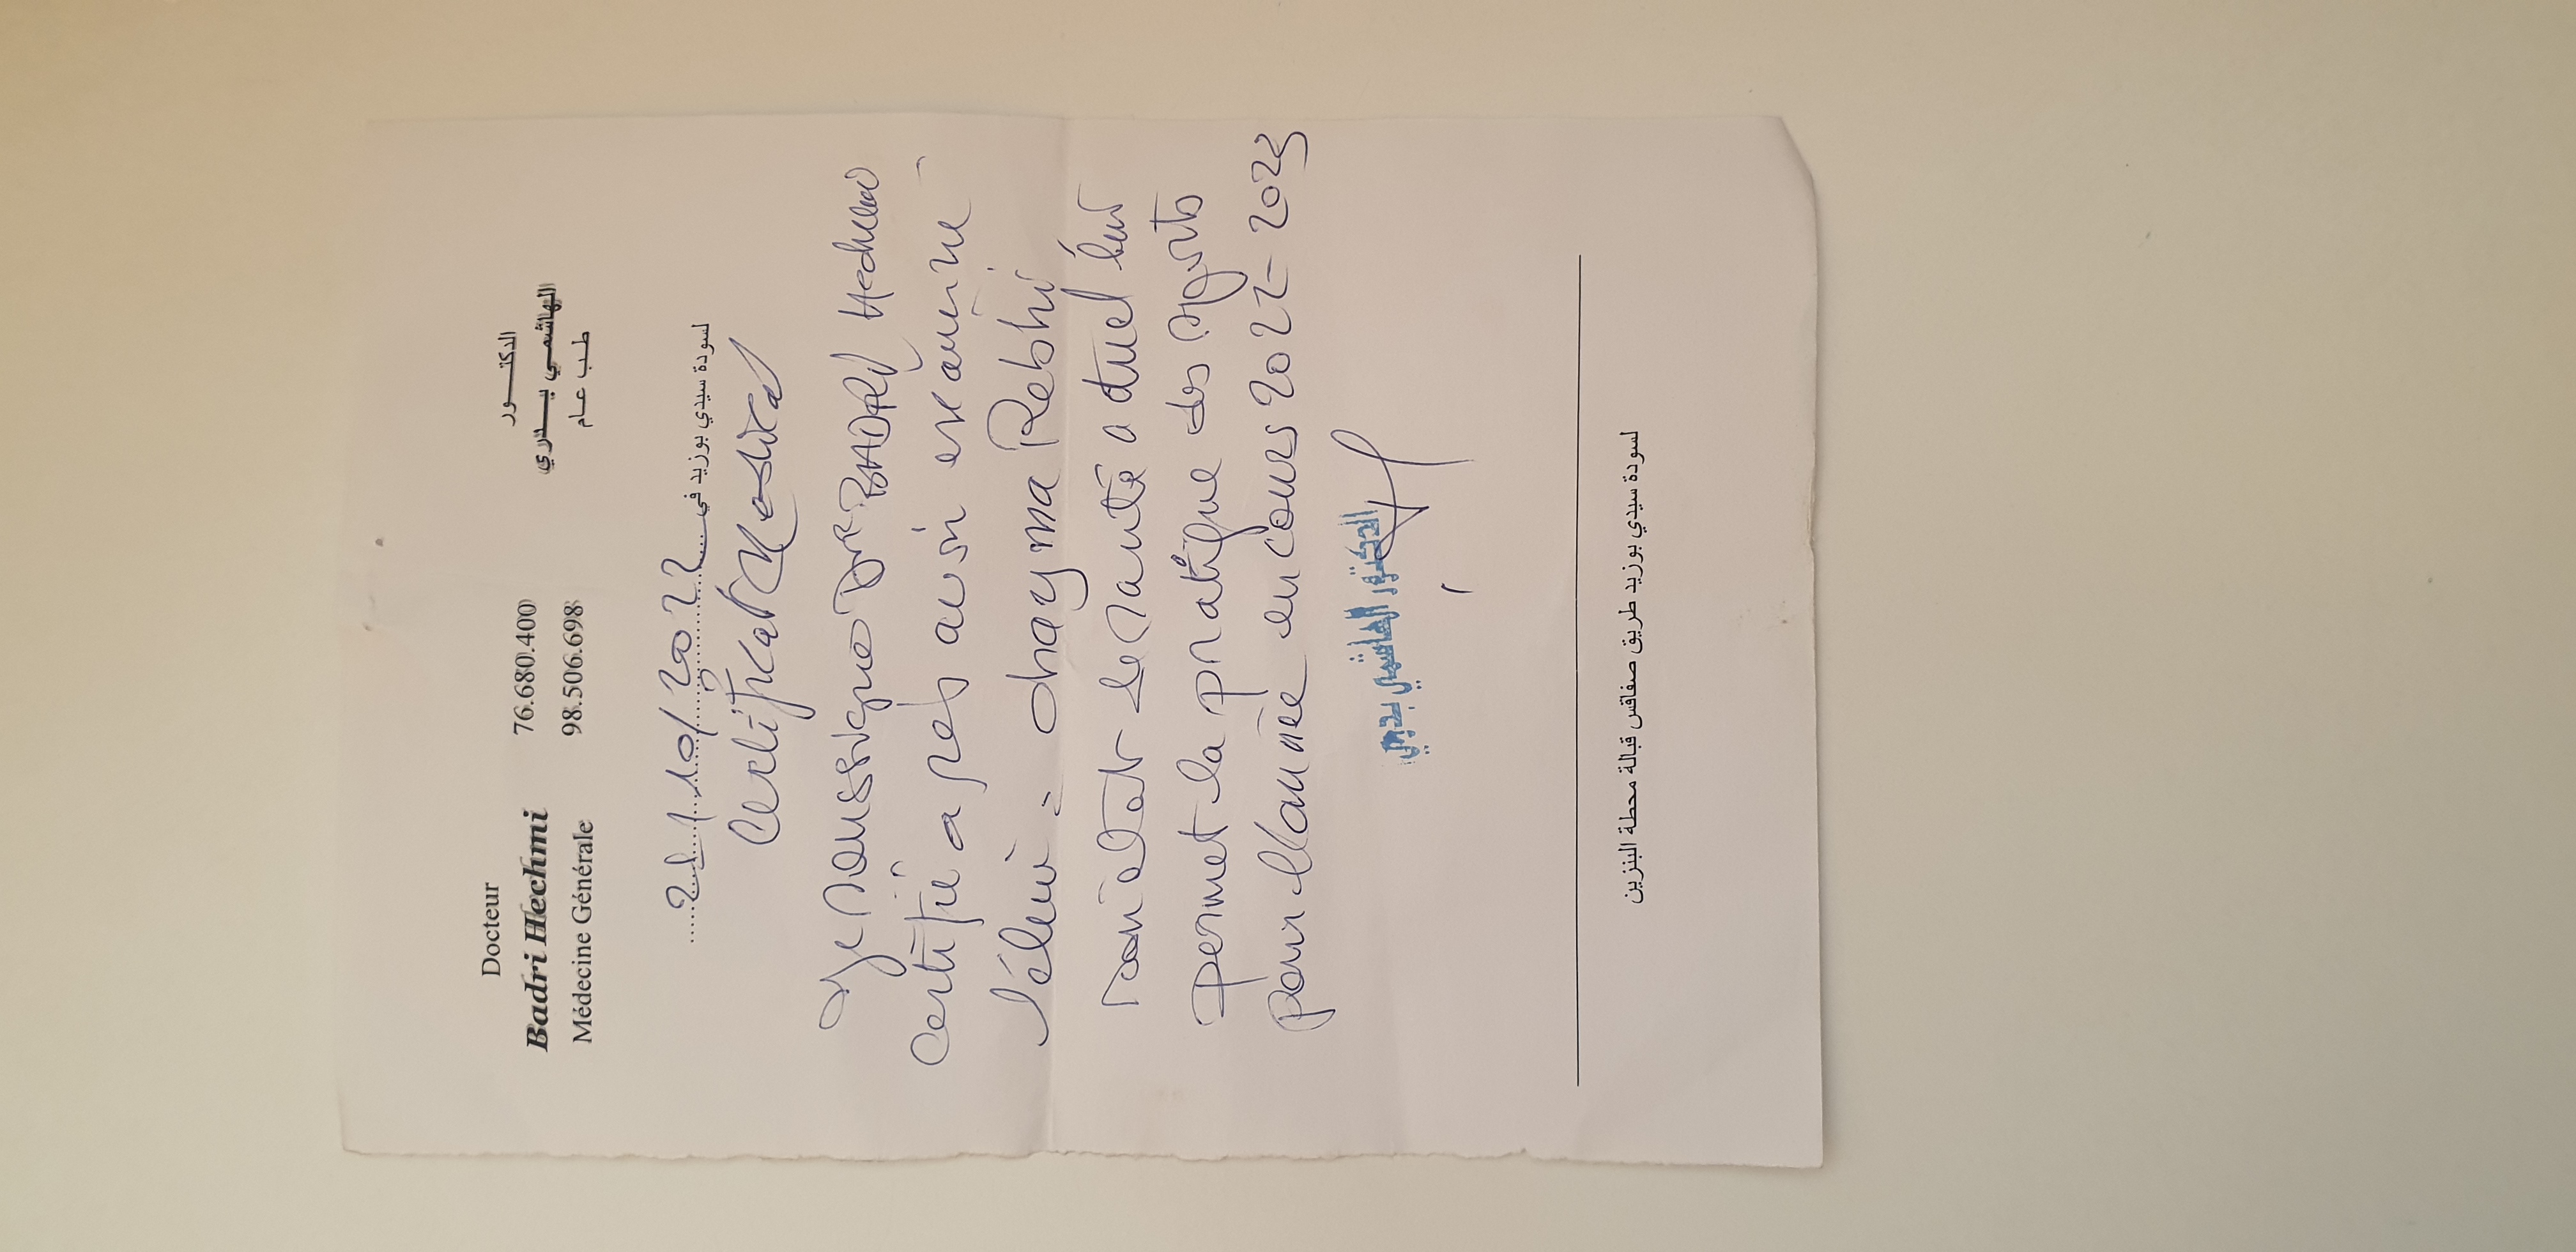 Docteur
Badri Hechmi
Médecine Générale
76.680.400
98.506.698
الدكتور
الهاشمي بدري
طب عام
21/10/2022 لسودة سيدي بوزيد في
Certificat Medical
Je soussigné Dr BADRI Hechmi
Certifie apres avoir examiné
l'élève : chayma Rebhi
son etat de santé actuel lui
permet la pratique des sports
pour l'année en cours 2022-2023
الدكتور الهاشمي بدري
لسودة سيدي بوزيد طريق صفاقس قبالة محطة البنزين